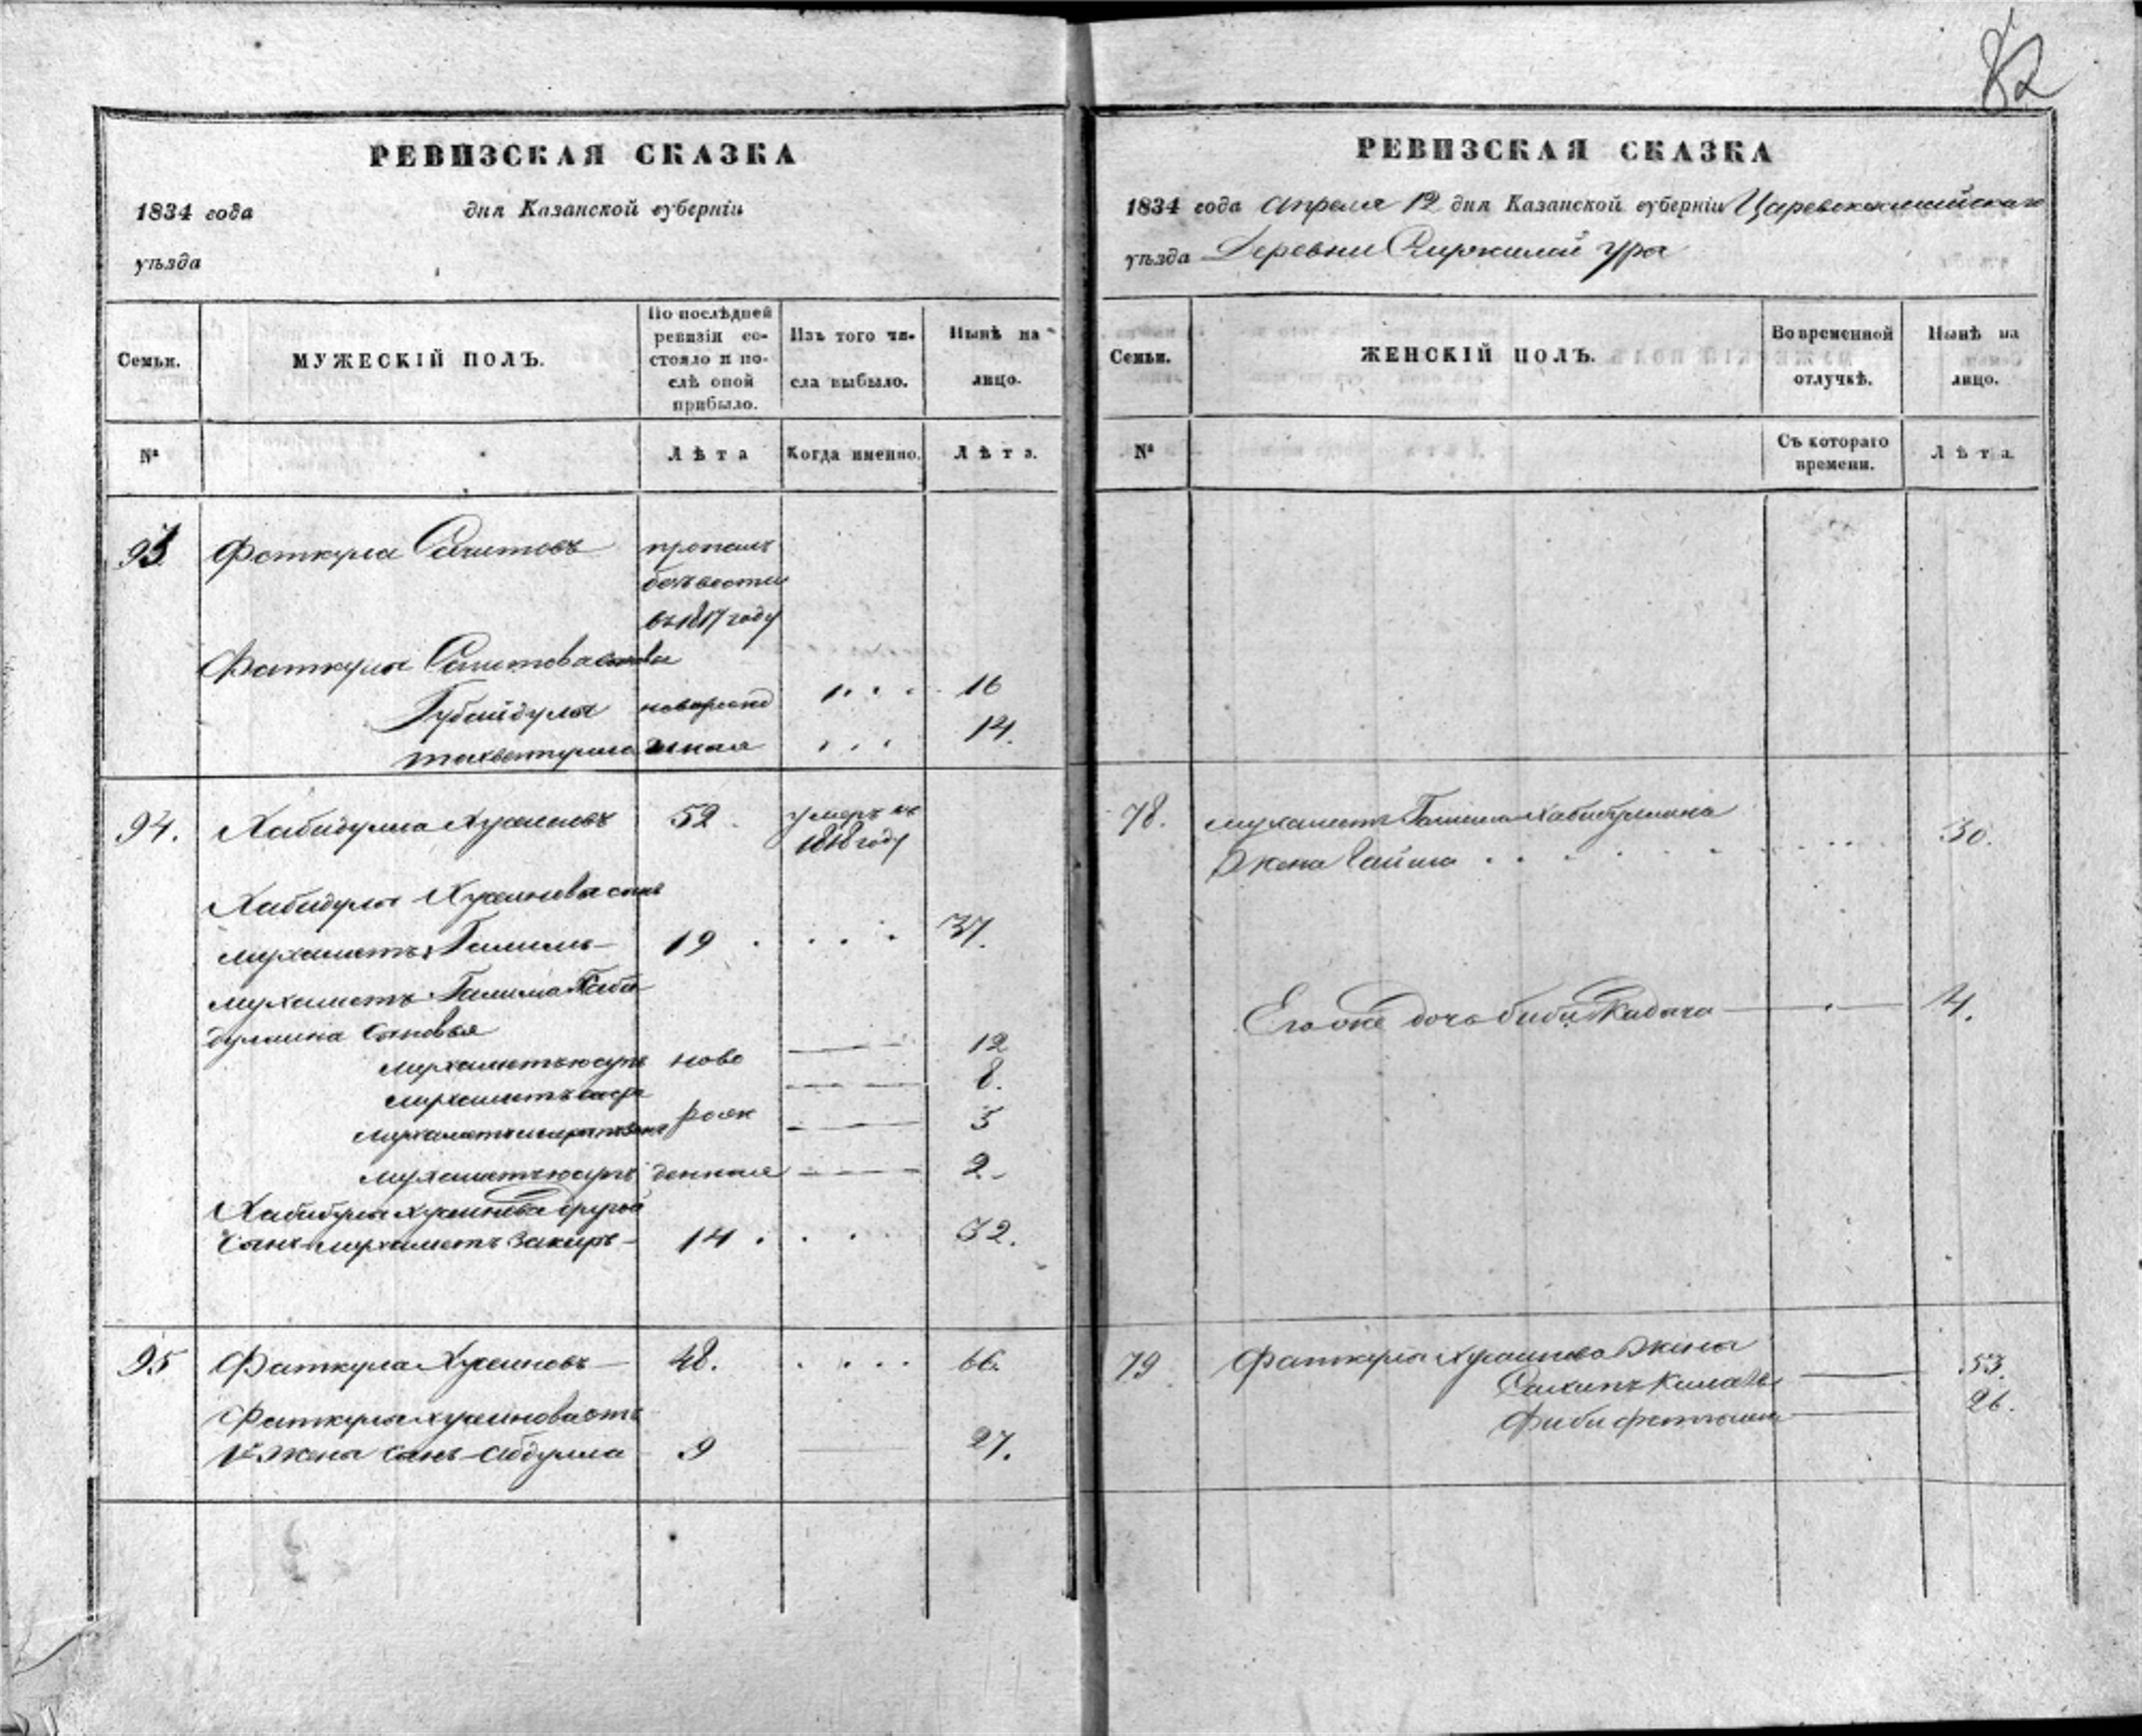 82
РЕВИЗСКАЯ СКАЗКА
1834 года дня Казанской губерніи
уѣзда
Семьи.
МУЖЕСКІЙ ПОЛЪ.
По послѣдней ревизіи состояло и послѣ оной прибыло.
Изъ того числа выбыло.
Нынѣ на лицо.
№
Лѣта
Когда именно.
Лѣта.
93 Фаткула Сагитовъ пропалъ
безъ вести
въ 1817 году
Фаткулы Сагитова сынова
Губайдула новорожд 16
енная 14.
94. Хабидулла Хусаиновъ 52 умеръ въ
1818 году
Хабидулы Хусаинова сынъ
Мухаметъ Галимъ 19 37.
Мухаметъ Галима Хаби
дуллина сыновья
ново 12
8.
рож 5
денныя 2
Хабибулы Хусаинова другой
сынъ Мухаметъ Закиръ 14 32.
95 Фаткула Хусаиновъ 48. 66.
Фаткулы Хусаинова отъ
1й жены сынъ Абдулла 9 27.
РЕВИЗСКАЯ СКАЗКА
1834 года апреля 12 дня Казанской губерніи Царевококшайскаго
уѣзда Деревни Ура
Семьи.
ЖЕНСКІЙ ПОЛЪ.
Во временной отлучкѣ.
Нынѣ на лицо.
№
Съ котораго времени.
Лѣта.
78. Мухаметъ Галима Хабибуллина
жена 30.
Его же дочь Биби 4.
79 Фаткулы Хусаинова жены
53.
26.